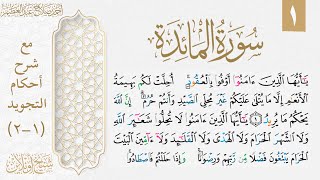 ١
سُورَةُ المَائِدَةِ
مع
شرح
أحكام
التجويد
(١-٢)
يَٰٓأَيُّهَا ٱلَّذِينَ ءَامَنُوٓا۟ أَوْفُوا۟ بِٱلْعُقُودِ أُحِلَّتْ لَكُم بَهِيمَةُ
ٱلْأَنْعَٰمِ إِلَّا مَا يُتْلَىٰ عَلَيْكُمْ غَيْرَ مُحِلِّى ٱلصَّيْدِ وَأَنتُمْ حُرُمٌ إِنَّ ٱللَّهَ
يَحْكُمُ مَا يُرِيدُ ١ يَٰٓأَيُّهَا ٱلَّذِينَ ءَامَنُوا۟ لَا تُحِلُّوا۟ شَعَٰٓئِرَ ٱللَّهِ
وَلَا ٱلشَّهْرَ ٱلْحَرَامَ وَلَا ٱلْهَدْىَ وَلَا ٱلْقَلَٰٓئِدَ وَلَآ ءَآمِّينَ ٱلْبَيْتَ
ٱلْحَرَامَ يَبْتَغُونَ فَضْلًا مِّن رَّبِّهِمْ وَرِضْوَٰنًا وَإِذَا حَلَلْتُمْ فَٱصْطَادُوا۟